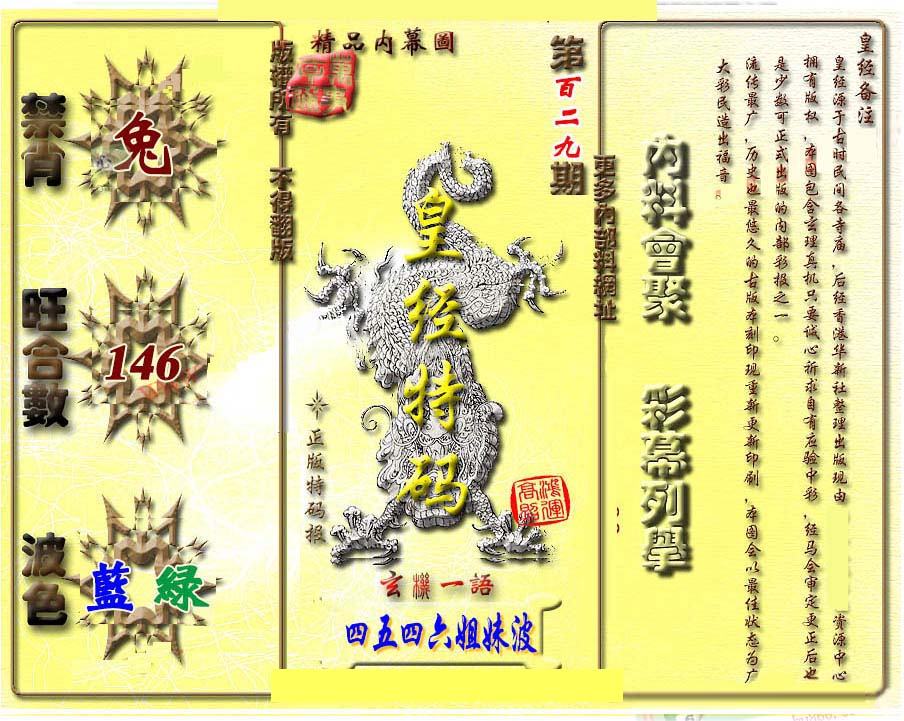 禁肖
兔
旺合數
146
波色
藍 綠
版權所有 不得翻版
精品内幕圖
第百二九期
皇经特码
正版特码报
鴻運
高照
玄機一語
四五四六姐妹波
更多内部料網址
内料會聚 彩幕列舉
皇经备注
皇经源于古时民间各寺庙，后经香港华新社整理出版现由 资源中心
拥有版权，本图包含玄理真机只要诚心祈求自有应验中彩，经马会审定更正后也
是少数可正式出版的内部彩报之一。
流传最广，历史也最悠久的古版本刻印现重新更新印刷，本图会以最佳状态为广
大彩民造出福音